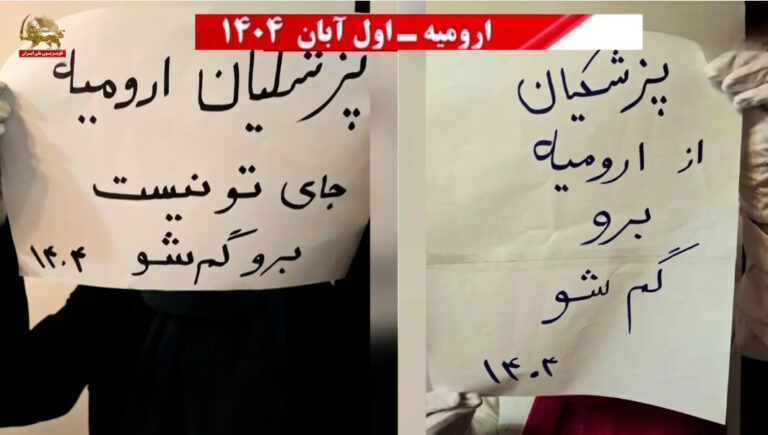 ارومیه ــ اول آبان ۱۴۰۴
سیمای آزادی
تلویزیون ملی ایران
پزشکیان
از ارومیه
برو
گم شو
۱۴۰۴
پزشکیان ارومیه
جای تو نیست
برو گم شو ۱۴۰۴